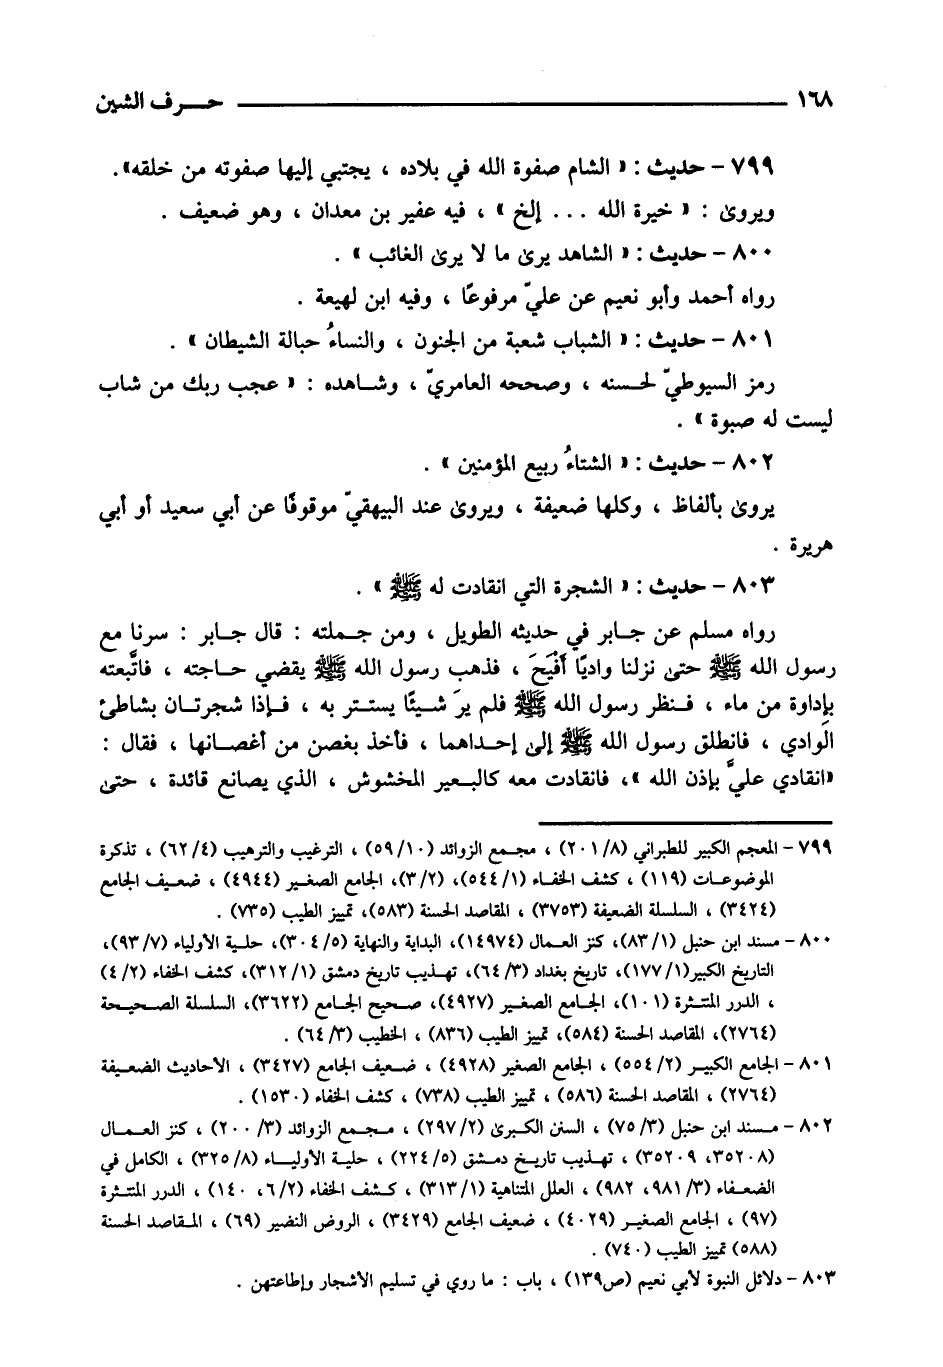 ١٦٨ ـــــــــ حـــرف الشين
٧٩٩ – حديث : « الشام صفوة الله في بلاده ، يجتبي إليها صفوته من خلقه».
ويروىٰ : « خيرة الله ... إلخ » ، فيه عفير بن معدان ، وهو ضعيف .
٨٠٠ – حديث : « الشاهد يرىٰ ما لا يرىٰ الغائب » .
رواه أحمد وأبو نعيم عن عليّ مرفوعًا ، وفيه ابن لهيعة .
٨٠١ – حديث : « الشباب شعبة من الجنون ، والنساءُ حبالة الشيطان » .
رمز السيوطيّ لحسنه ، وصححه العامريّ ، وشاهده : « عجب ربك من شاب
ليست له صبوة » .
٨٠٢ – حديث : « الشتاءُ ربيع المؤمنين » .
يروىٰ بألفاظ ، وكلها ضعيفة ، ويروىٰ عند البيهقيّ موقوفًا عن أبي سعيد أو أبي
هريرة .
٨٠٣ – حديث : « الشجرة التي انقادت له ﷺ » .
رواه مسلم عن جابر في حديثه الطويل ، ومن جملته : قال جابر : سرنا مع
رسول الله ﷺ حتىٰ نزلنا واديًا أَفْيَحَ ، فذهب رسول الله ﷺ يقضي حاجته ، فاتَّبعته
بإداوة من ماء ، فنظر رسول الله ﷺ فلم يرَ شيئًا يستتر به ، فإذا شجرتان بشاطئ
الوادي ، فانطلق رسول الله ﷺ إلىٰ إحداهما ، فأخذ بغصن من أغصانها ، فقال :
«انقادي عليَّ بإذن الله »، فانقادت معه كالبعير المخشوش ، الذي يصانع قائدة ، حتىٰ
٧٩٩ – المعجم الكبير للطبراني (٢٠١/٨) ، مجمع الزوائد (٥٩/١٠) ، الترغيب والترهيب (٦٢/٤) ، تذكرة
الموضوعات (١١٩) ، كشف الخفاء (٥٤٤/١)، (٣/٢)، الجامع الصغير (٤٩٤٤) ، ضعيف الجامع
(٣٤٢٤) ، السلسلة الضعيفة (٣٧٥٣) ، المقاصد الحسنة (٥٨٣)، تمييز الطيب (٧٣٥) .
٨٠٠ – مسند ابن حنبل (٨٣/١)، كنز العمال (١٤٩٧٤)، البداية والنهاية (٣٠٤/٥)، حلية الأولياء (٩٣/٧)،
التاريخ الكبير(١٧٧/١)، تاريخ بغداد (٦٤/٣)، تهذيب تاريخ دمشق (٣١٢/١)، كشف الخفاء (٤/٢)
، الدرر المنتثرة (١٠١)، الجامع الصغير (٤٩٢٧)، صحيح الجامع (٣٦٢٢)، السلسلة الصحيحة
(٢٧٦٤)، المقاصد الحسنة (٥٨٤)، تمييز الطيب (٨٣٦) ، الخطيب (٦٤/٣) .
٨٠١ – الجامع الكبير (٥٥٤/٢) ، الجامع الصغير (٤٩٢٨) ، ضعيف الجامع (٣٤٢٧) ، الأحاديث الضعيفة
(٢٧٦٤) ، المقاصد الحسنة (٥٨٦) ، تمييز الطيب (٧٣٨) ، كشف الخفاء (١٥٣٠) .
٨٠٢ – مسند ابن حنبل (٧٥/٣) ، السنن الكبرىٰ (٢٩٧/٢) ، مجمع الزوائد (٢٠٠/٣) ، كنز العمال
(٣٥٢٠٨، ٣٥٢٠٩) ، تهذيب تاريخ دمشق (٢٢٤/٥) ، حلية الأولياء (٣٢٥/٨) ، الكامل في
الضعفاء (٩٨١/٣، ٩٨٢) ، العلل المتناهية (٣١٣/١) ، كشف الخفاء (٦/٢، ١٤٠) ، الدرر المنتثرة
(٩٧) ، الجامع الصغير (٤٠٢٩) ، ضعيف الجامع (٣٤٢٩) ، الروض النضير (٦٩) ، المقاصد الحسنة
(٥٨٨) تمييز الطيب (٧٤٠) .
٨٠٣ – دلائل النبوة لأبي نعيم (ص١٣٩) ، باب : ما روي في تسليم الأشجار وإطاعتهن .